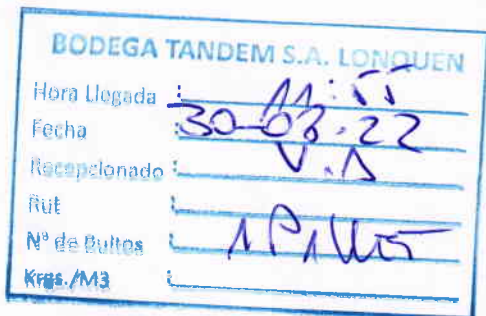 BODEGA TANDEM S.A. LONQUEN
Hora Llegada : 11:55
Fecha : 30-03-22
Recepcionado : V.A
Rut
N° de Bultos : 1 Pallet
Krgs./M3 :